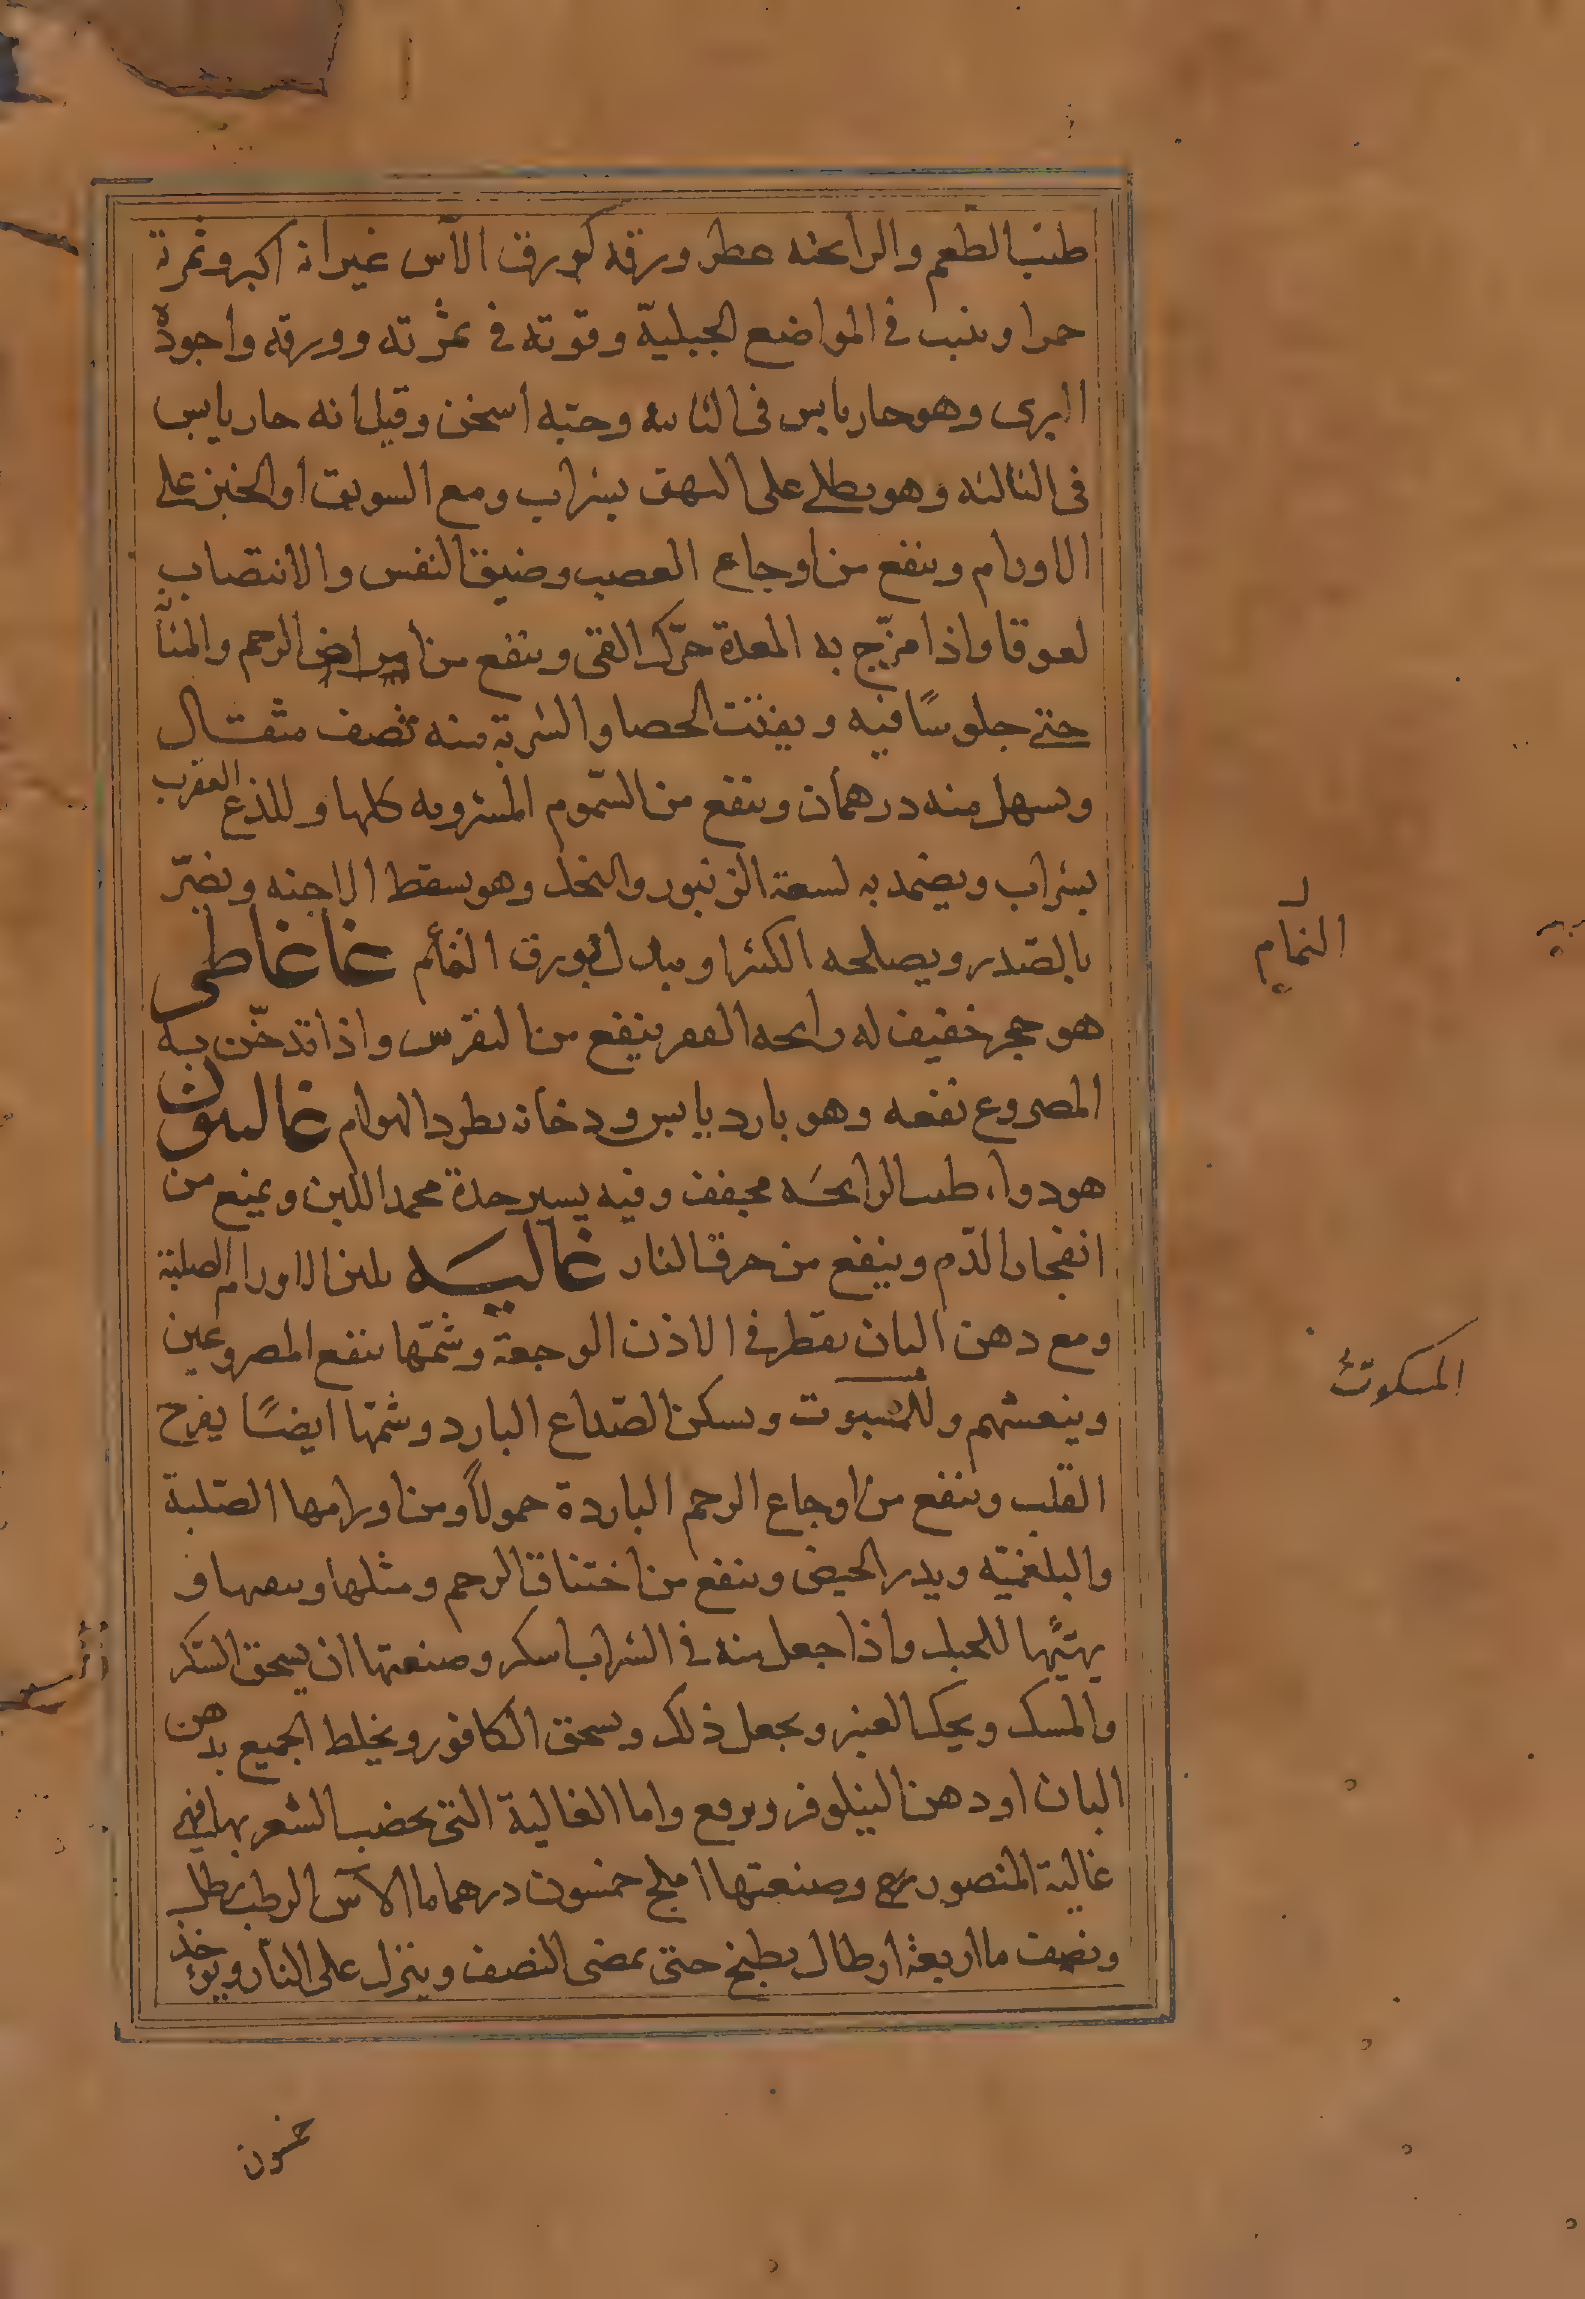 طيب الطعم والرائحة عطر ورقه كورق الآس غير انه اكبر وثمرة
حمرا وينبت في المواضع الجبلية وقوته في ثمرته وورقه واجوده
البرى وهو حار يابس في الثانية وحبه اسخن وقيل انه حار يابس
في الثالثه وهو يطلى على البهق بشراب ومع السويق او الخبز على
الاورام وينفع من اوجاع العصب وضيق النفس والانتصاب
لعوقا واذا مزج به المعدة حرّك القى وينفع من امراض الرحم والمثانة
حتى جلوسًا فيه ويفتت الحصا والشربة منه نصف مثقال
ويسهل منه درهمان وينفع من السّموم المشروبه كلها وللذع العقرب
بشراب ويضمد به لسعة الزنبور والنحل وهو يسقط الاجنه ويضرّ
بالصّدر ويصلحه الكثيرا وبدل البورق النمام غاغاطى
هو حجر خفيف له رايحه القفر ينفع من النقرس واذا تدخّن به
المصروع نفعه وهو بارد يابس ودخانه يطرد الهوام غاليون
هو دواء طيب الرايحَه مجفف وفيه يسير حدة محمد اللبن ويمنع من
انفجار الدّم وينفع من حرق النار غاليه يلين الاورام الصلبة
ومع دهن البان يقطر في الاذن الوجعة وشمّها ينفع المصروعين
وينعشهم وللمسبوت ويسكن الصّداع البارد وشمّها ايضًا يفرح
القلب وينفع من اوجاع الرحم الباردة حمولاً ومن اورامها الصّلبة
والبلغميّه ويدر الحيض وينفع من اختناق الرحم وميلها وينقيها و
يهيّها للحبل واذا جعل منه في الشراب اسكر وصنعتها ان يسحق السّكر
والمسك ويحك العنبر ويجعل ذلك ويسحق الكافور ويخلط الجميع بدهن
البان او دهن النيلوفر ويرفع واما الغالية التى يخضب الشعر بها فهى
غالية المنصور وصنعتها املج خمسون درهما ما الآس الرطب رطل
ونصف ما اربعة ارطال يطبخ حتى يمضى النصف وينزل على النار ويؤخذ
النمام
المسكوت
خمسون